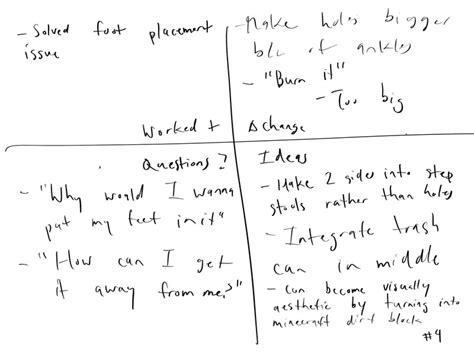 - Solved foot placement
issue
Worked +
- Make holes bigger
b/c of ankles
- "Burn it"
- Too big
Δ change
Questions?
- "Why would I wanna
put my feet in it"
- "How can I get
it away from me?"
Ideas
- Make 2 sides into step
stools rather than holes
- Integrate trash
can in middle
- Can become visually
aesthetic by turning into
minecraft dirt block
#4